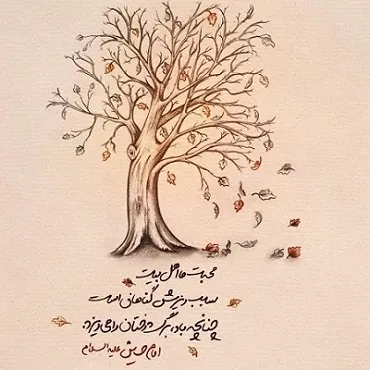 محبت ما اهل بیت
سبب ریزش گناهان است
چنانچه باد، برگ درختان را می‌ریزد
امام حسین علیه السلام